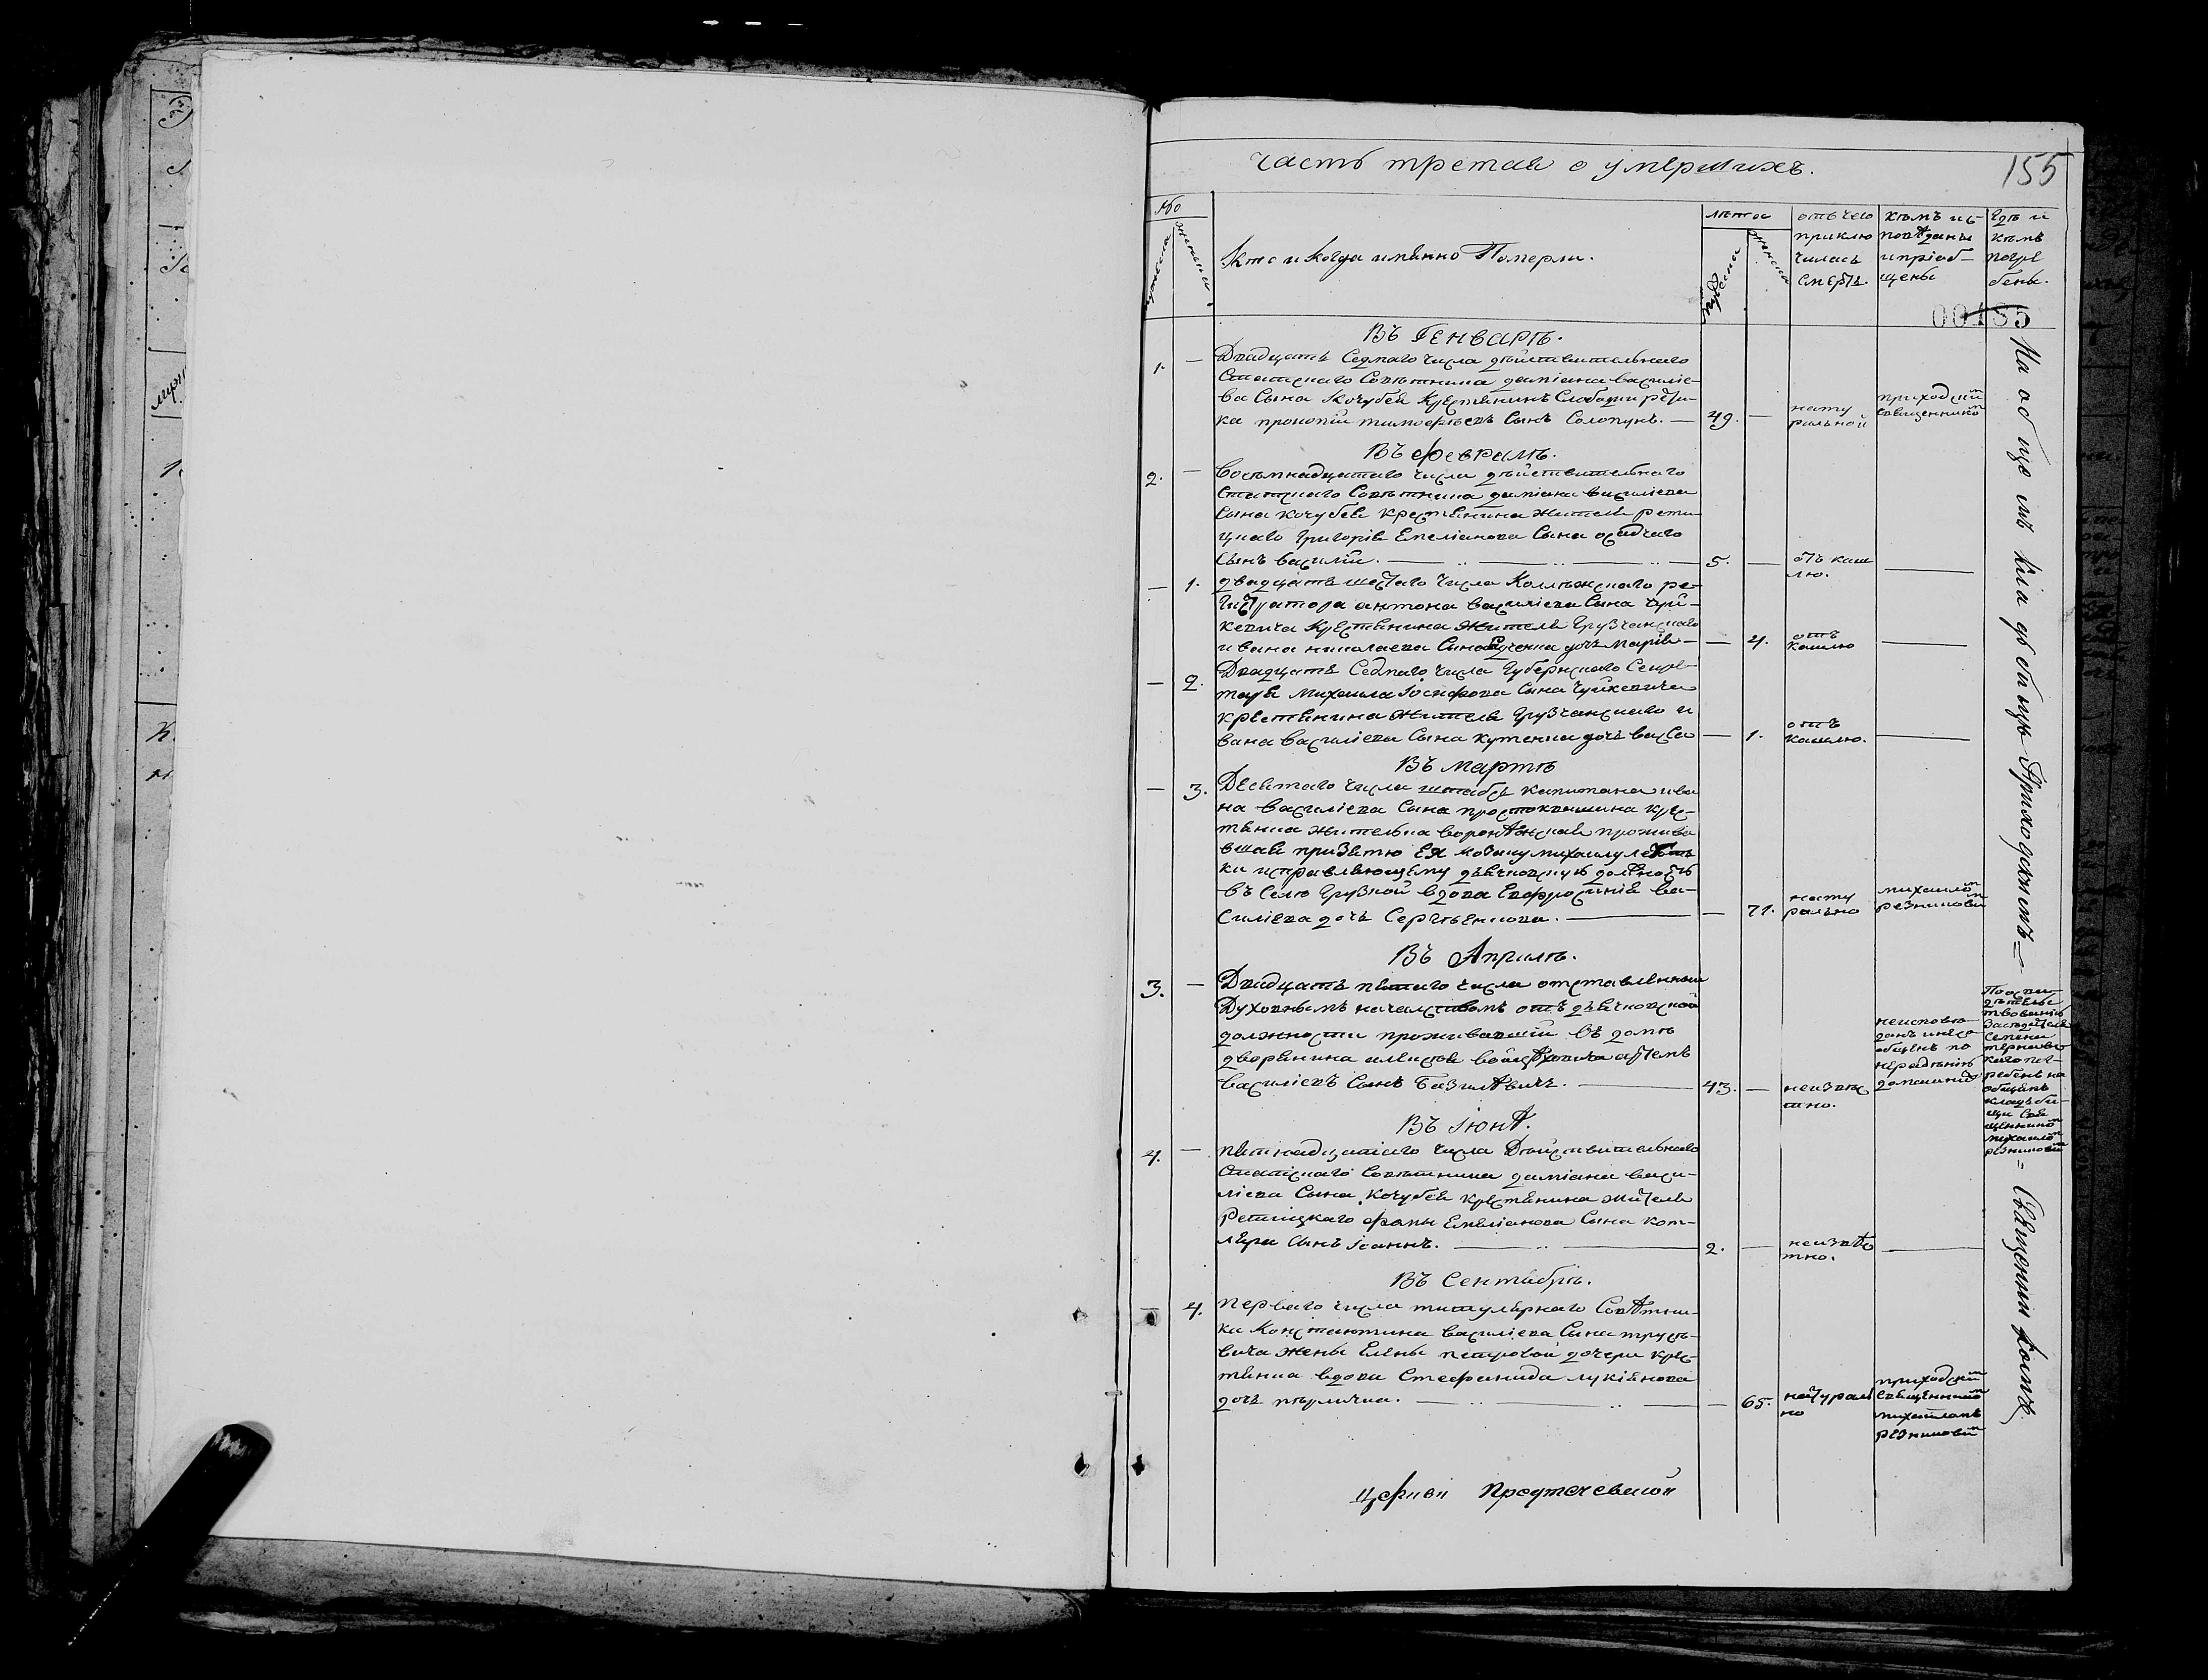 часть третая о умершихъ.
155
№
мужеска
женска
Кто и когда имянно Померли.
лета
мужеска
женска
отъ чего
приклю
чилась
смерть
кемъ ис-
поведаны
и пріоб-
щены
где и
кемъ
погре
бены.
00155
Въ Генваре.
1. — Двадцать Седмаго числа действителнаго
Статскаго Советника даміана василіе-
ва Сына Кочубея Крестянинъ Слободи
ка прокопій тимофеевъ Сынъ Солопунъ. — 49. — нату
ральной
приходским
священником
Въ феврале.
2. — восемнадцатаго числа действительнаго
Статскаго Советника даміана василіева
Сына кочубея крестянина жителя рети
цкаго григорія Емеліанова Сына осадчаго
Сынъ василій. — 5. — отъ каш
лю. —
— 1. двадцать шестаго числа Коллежскаго ре-
гистратора антона василіева Сына чуй-
кевича Крестянина жителя грузчанскаго
ивана николаева Сына дочь марія — — 4. отъ
кашлю —
— 2. Двадцать Седмаго числа Губернскаго Секре-
таря Михаила Іосифова Сына чуйкевича
крестянина жителя грузчанскаго и
вана василіева Сына кутенка дочь васса — 1. отъ
кашлю. —
Въ марте
— 3. Десятаго числа штабсъ капитана ива
на василіева Сына простоквашина крес-
тянка жителка воронежская прожива
вшая при зятю ея козаку михаилу
ки исправляющему дячковскую должность
въ Селе Грузкой вдова Евфросинія ва-
силіева дочь Сергіенкова. — — 71. нату
рально
михаилом
резниковим
Въ Апреле.
3. — Двадцать пятаго числа отставленный
Духовнымъ началствомъ отъ дячковской
должности проживавшій въ доме
дворянина алексея войцеховича артемъ
василіевъ Сынъ Базилевичъ. — 43. — неизвес
тно.
неисповe-
данъ и неco
общенъ по
нерадению
домашних
По свидетельс
твованію
Заседателя
Семена
погребенъ на
общемъ
кладъби-
щи Свя
щенником
михаилом
резниковим
Въ Іюне.
4. — пятнадцатаго числа Действительнаго
Статскаго Советника даміана васи-
ліева Сына Кочубея крестянина жителя
Ретицкаго фомы Емеліанова Сына кот-
ляра Сынъ Іоаннъ. — 2. — неизвес
тно. —
Въ Сентябре.
— 4. перваго числа титулярнаго Советни-
ка Константина василіева Сына
вича жены Елены петровой дочери крес-
тянка вдова Стефанида лукіянова
дочь — — 65. натурал
но
приходским
священником
михаиломъ
резниковим
На общемъ кладбищи Приходскимъ = Священникомъ
церкви Предтечевской